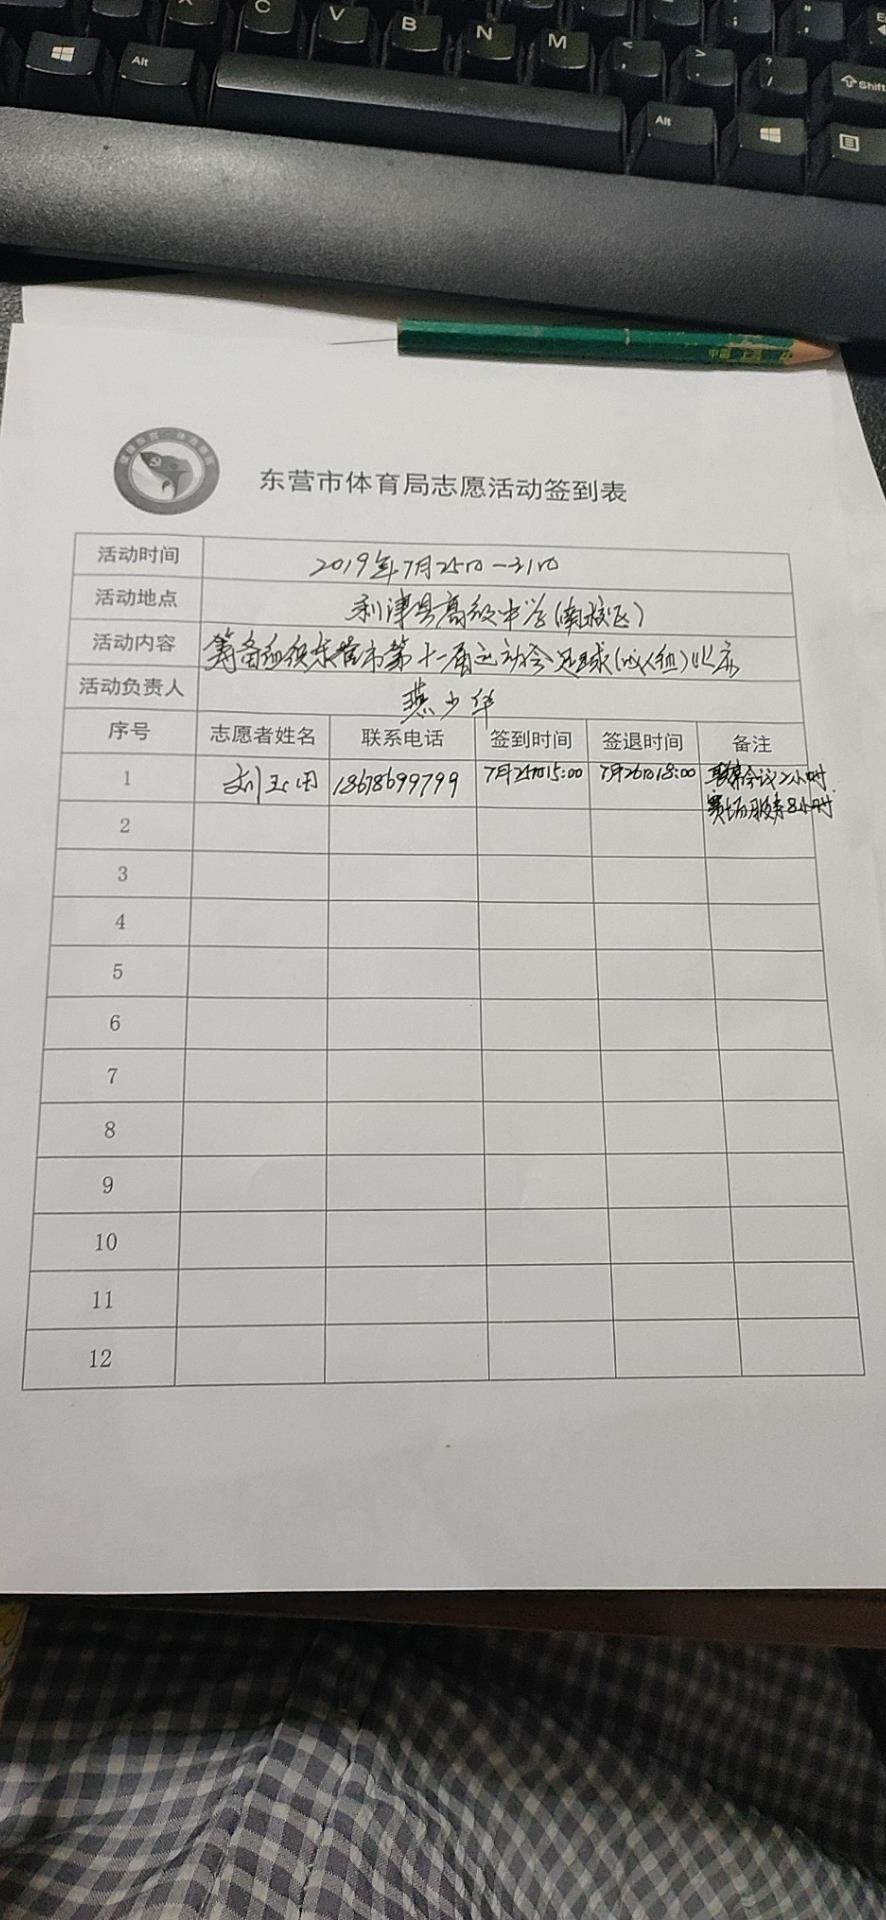 C V B N M
Alt Alt Shift
中国 上海
东营市体育局志愿活动签到表
活动时间 2019年7月25日—31日
活动地点 利津县高级中学(南校区)
活动内容 筹备组织东营市第十一届运动会足球(成人组)比赛
活动负责人 燕少华
序号 志愿者姓名 联系电话 签到时间 签退时间 备注
1 刘玉国 18678699799 7月25日15:00 7月26日18:00 联席会议2小时
赛场服务8小时
2
3
4
5
6
7
8
9
10
11
12